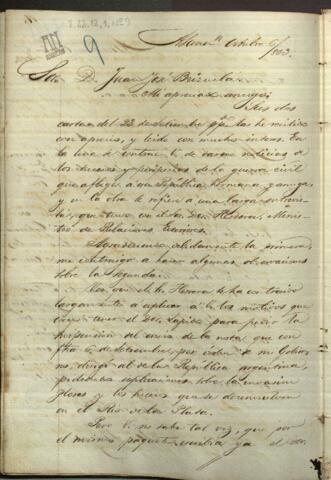 I-22,12,1, Nº 9
9
Asuncn Octubre 6/863.
Sor. D. Juan José Brizuela.
Mi apreciado amigo:
Sus dos
cartas del 22 de Setiembre ppdo. las he recibido
con aprecio, y leido con mucho interes. En
la una se contrae V. de darme noticias de
los sucesos y peripecias de la guerra civil
que aflige a esa República hermana y amiga
y en la otra se refiere a una larga entrevis-
ta, que tuvo con el Sor. Dor. Herrera, Minis-
tro de Relaciones Exteriores.
Agradezco debidamente la primera,
me contraigo a hacer algunas observaciones
sobre la segunda.
Veo que el Sor. Herrera se ha contraido
largamente a explicar a V. los motivos que
tuvo el Dor. Lapido para pedir la
suspension del envio de la nota, que con
fha. 6 de Setiembre, por orden de mi Gobier-
no, dirigí al de la República Argentina,
pidiendo esplicaciones sobre la invasion
Flores y los hechos que se desenvuelven
en el Rio de la Plata.
Pero V. no sabe tal vez, que por
el mismo paquete escribia ya el Sor.